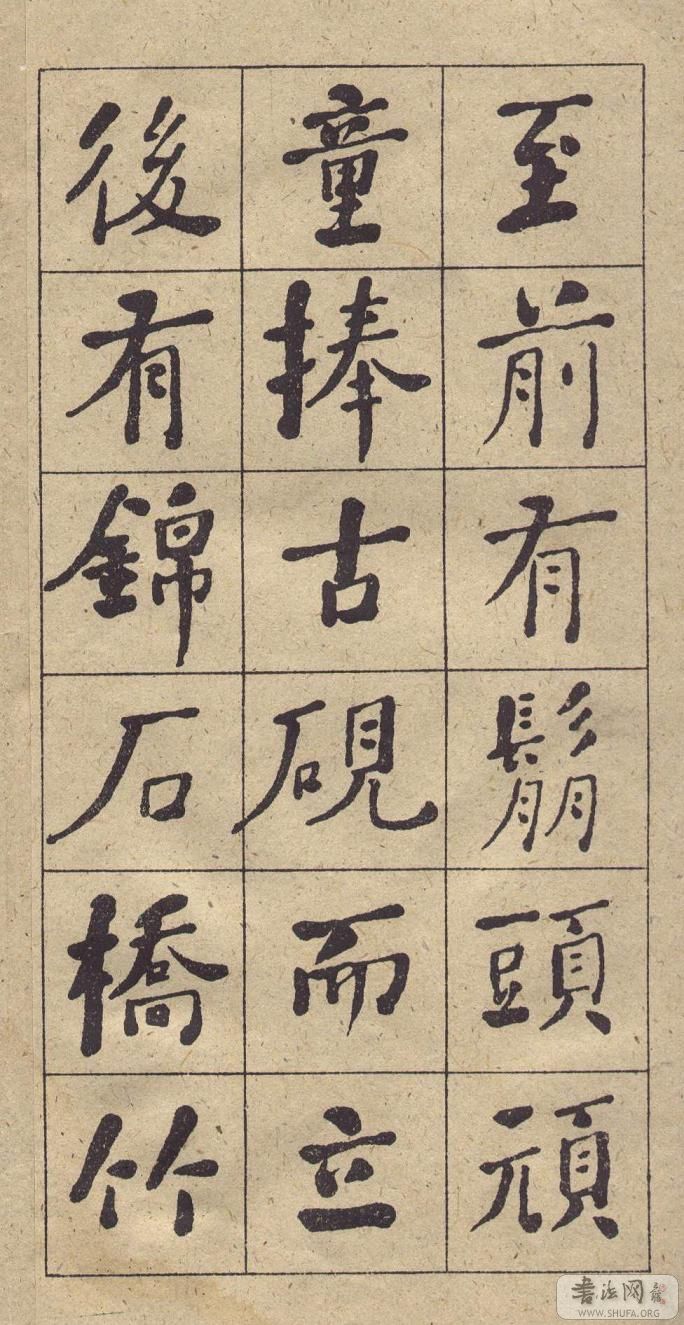 至前有鬅頭頑
童捧古硯而立
後有錦石橋竹
書法网
WWW.SHUFA.ORG